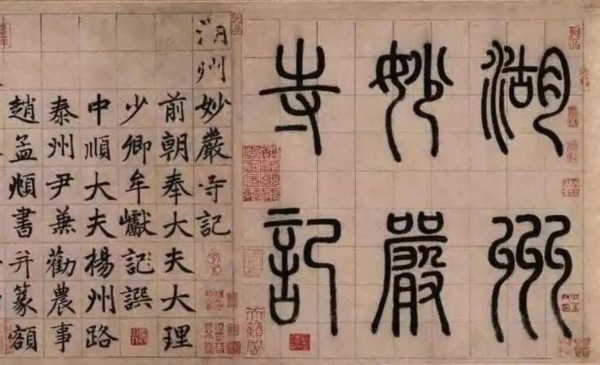 湖州
妙嚴
寺記
湖州妙嚴寺記
前朝奉大夫大理
少卿牟巘記譔
中順大夫楊州路
泰州尹兼勸農事
趙孟頫書并篆額